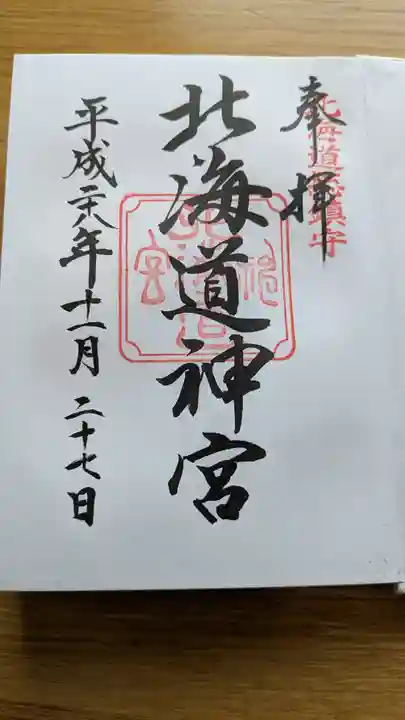 奉拝
北海道総鎮守
北海道神宮
平成二十八年十一月二十七日